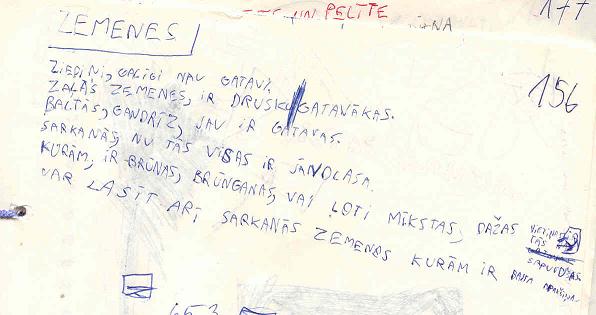 UN PELĪTE
177
ZEMENES
156
ZIEDIŅI, GALĪGI NAV GATAVI.
ZAĻĀS ZEMENES, IR DRUSKU GATAVĀKAS.
BALTĀS, GANDRĪZ, JAU IR GATAVAS.
SARKANĀS, NU TĀS VISAS IR JĀNOLASA.
KURĀM, IR BRŪNAS, BRŪNGANAS, VAI ĻOTI MĪKSTAS, DAŽAS
TĀS
SAPUVUŠAS.
VAR LASĪT ARĪ SARKANĀS ZEMENES KURĀM IR BALTA APAKŠIŅA.
653